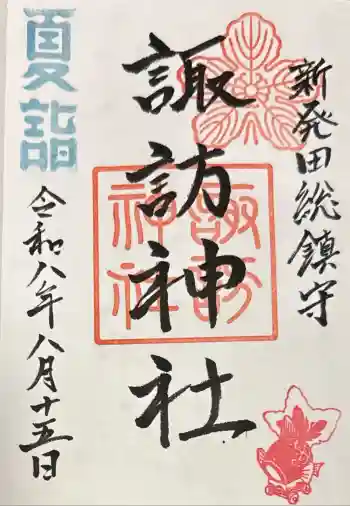 新発田総鎮守
諏訪神社
諏訪
神社
夏詣
令和八年八月十五日